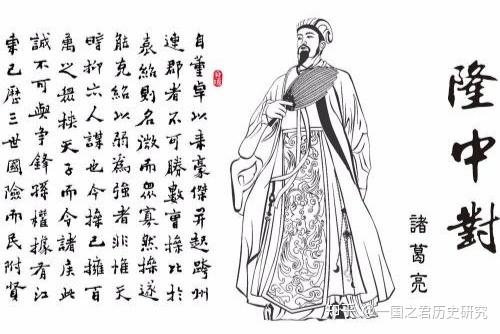 隆中對
諸葛亮
自董卓以來豪傑并起跨州
連郡者不可勝數曹操比於
袁紹則名微而眾寡然操遂
能克紹以弱為強者非惟天
時抑亦人謀也今操已擁百
萬之眾挾天子而令諸侯此
誠不可與爭鋒孫權據有江
東已歷三世國險而民附賢
知乎 @一国之君历史研究